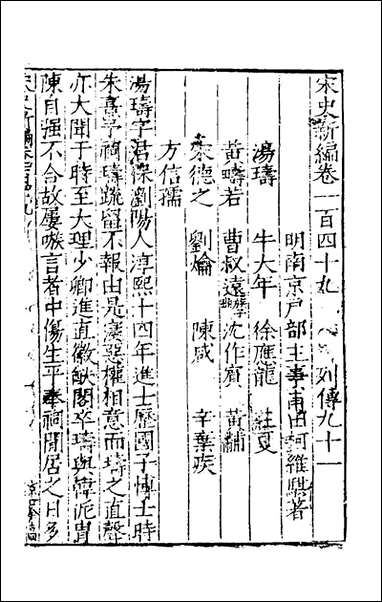 宋史新編卷一百四十九 列傳九十一
明南京户部主事莆田柯維騏著
湯璹 牛大年 徐應龍 莊夏
黃疇若 曹叔遠 沈作賓 黃黼
宋德之 劉爚 陳咸 辛棄疾
方信孺
湯璹字君保瀏陽人淳熙十四年進士歷國子博士時
朱熹予祠璹疏留不報由是寖忤權相意而璹之直聲
亦大聞于時至大理少卿進直徽猷閣卒璹與韓侂胄
陳自强不合故屢嗾言者中傷生平奉祠閒居之日多